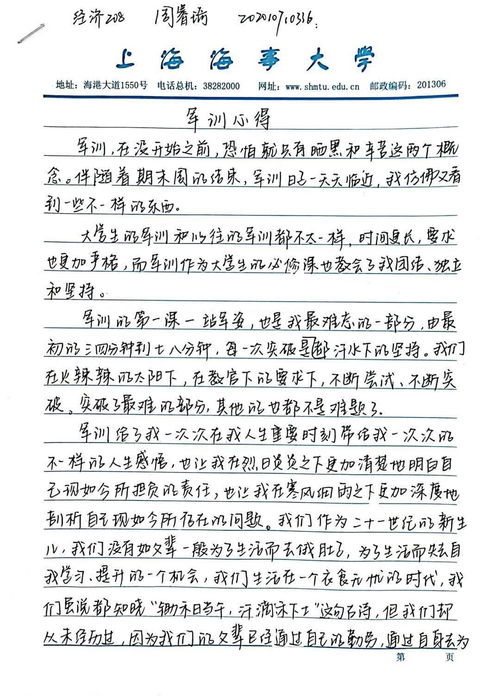 经济208 周睿涵 202010710336
上海海事大学
地址：海港大道1550号 电话总机：38282000 网址：www.shmtu.edu.cn 邮政编码：201306
军训心得
军训，在没开始之前，恐怕就只有晒黑和辛苦这两个概
念。伴随着期末周的结束，军训日子一天天临近，我仿佛又看
到一些不一样的东西。
大学生的军训和以往的军训都不太一样，时间更长，要求
也更加严格，而军训作为大学生的必修课也教会了我团结、独立
和坚持。
军训的第一课一站军姿，也是我最难忘的一部分，由最
初的三四分钟到七八分钟，每一次突破是都汗水下的坚持。我们
在火辣辣的太阳下，在教官下的要求下，不断尝试、不断突
破。突破了最难的部分，其他的也都不是难题了。
军训给了我一次次在我人生重要时刻带给我一次次的
不一样的人生感悟，也让我在烈日炎炎之下更加清楚地明白自
己现如今所担负的责任，也让我在寒风细雨之下更加深度地
剖析自己现如今所存在的问题。我们作为二十一世纪的新生
儿，我们没有如父辈一般为了生活而去饿肚子，为了生活而失去自
我学习、提升的一个机会，我们生活在一个衣食无忧的时代，我
们虽说都知晓“锄禾日当午，汗滴禾下土”这句古诗，但我们却
从未经历过，因为我们的父辈已经通过自己的勤劳，通过自身去为
第 页